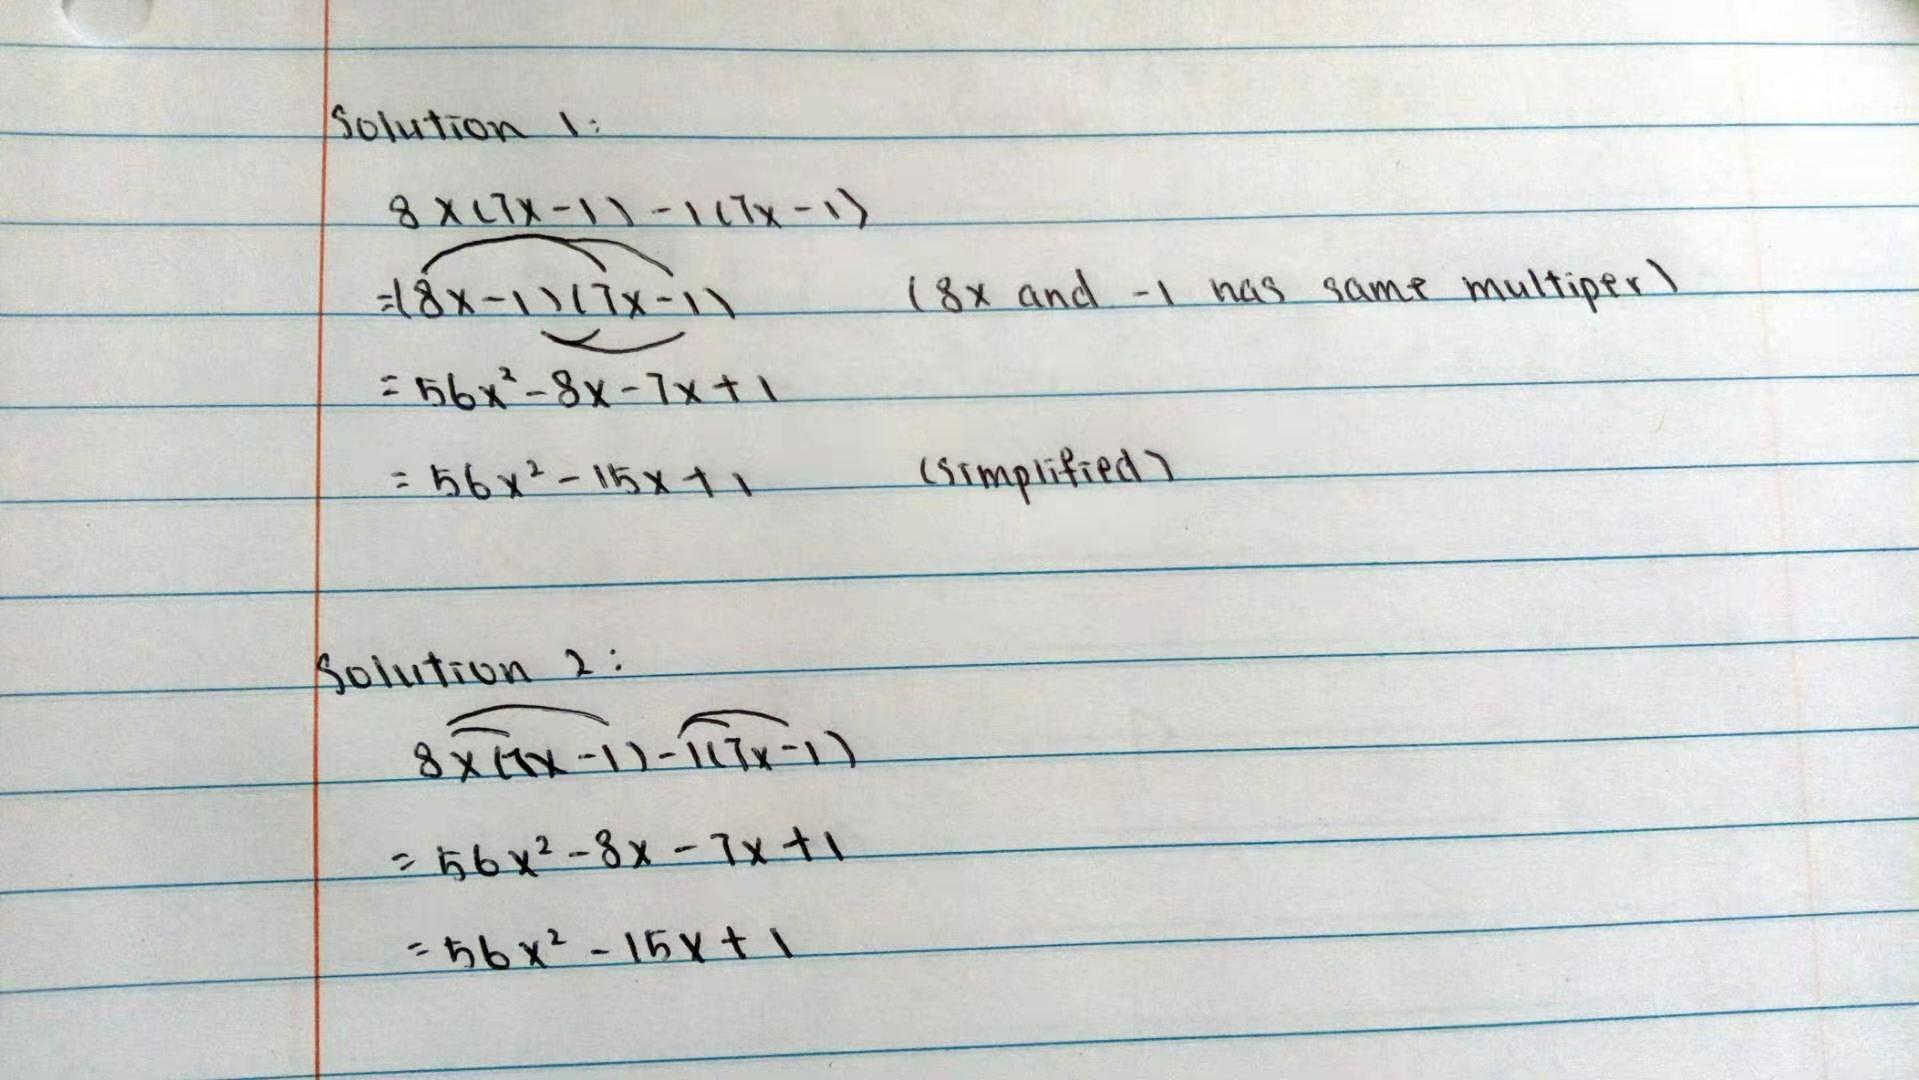 Solution 1:
8x(7x-1)-1(7x-1)
=(8x-1)(7x-1) (8x and -1 has same multiper)
=56x²-8x-7x+1
=56x²-15x+1 (simplified)
Solution 2:
8x(7x-1)-1(7x-1)
=56x²-8x-7x+1
=56x²-15x+1